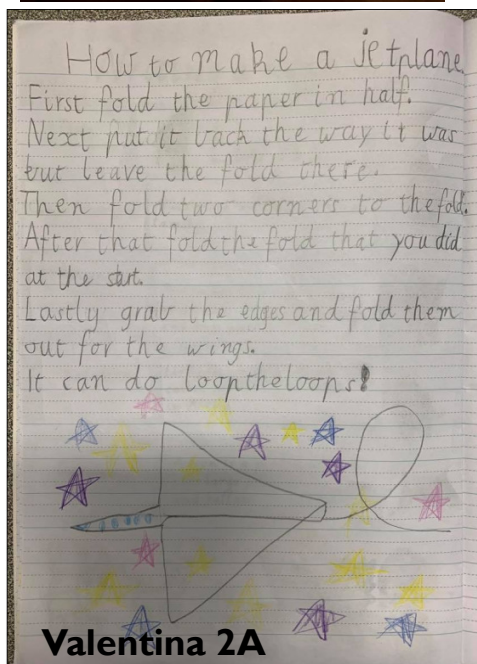 How to make a jetplane.
First fold the paper in half.
Next put it back the way it was
but leave the fold there.
Then fold two corners to the fold.
After that fold the fold that you did
at the start.
Lastly grab the edges and fold them
out for the wings.
It can do looptheloops!
Valentina 2A